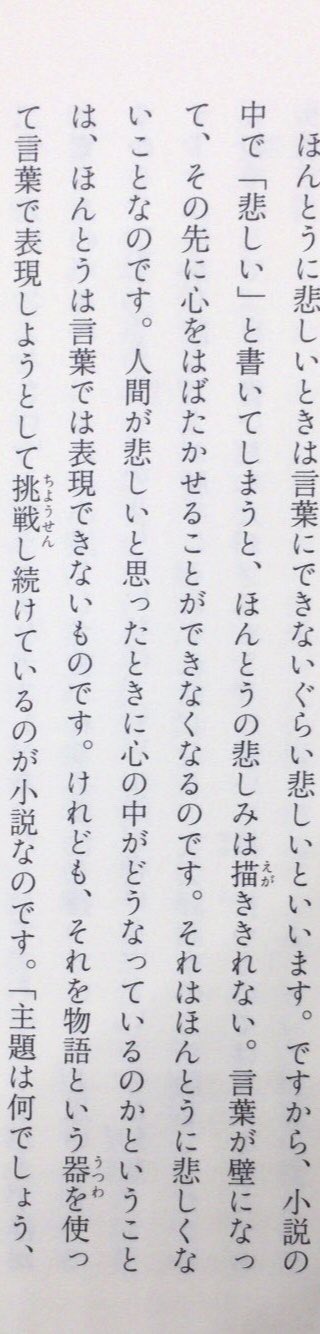 ほんとうに悲しいときは言葉にできないぐらい悲しいといいます。ですから、小説の
中で「悲しい」と書いてしまうと、ほんとうの悲しみは描ききれない。言葉が壁になっ
て、その先に心をはばたかせることができなくなるのです。それはほんとうに悲しくな
いことなのです。人間が悲しいと思ったときに心の中がどうなっているのかということ
は、ほんとうは言葉では表現できないものです。けれども、それを物語という器を使っ
て言葉で表現しようとして挑戦し続けているのが小説なのです。「主題は何でしょう、